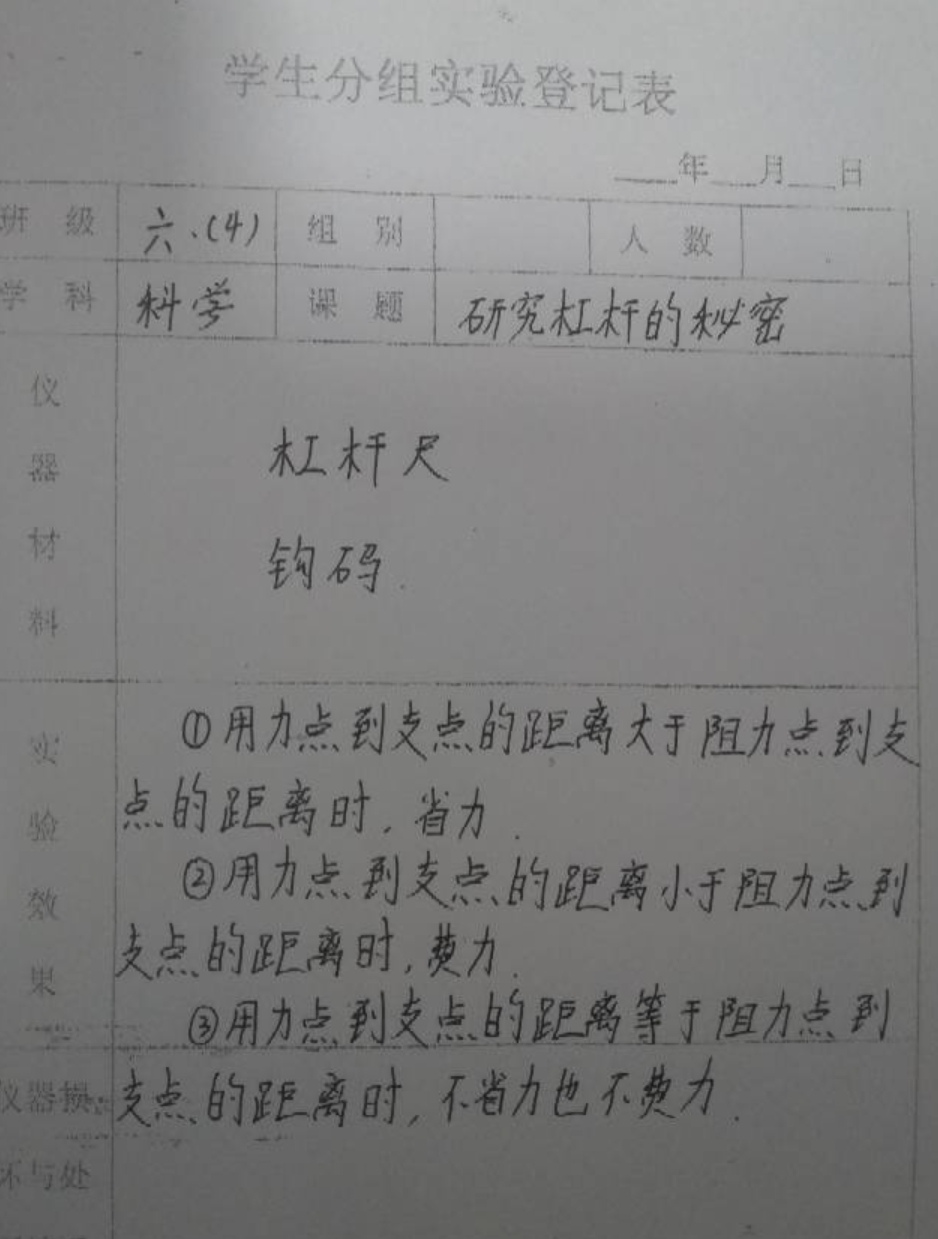 学生分组实验登记表
年 月 日
班级 六.(4) 组别 人数
学科 科学 课题 研究杠杆的秘密
仪器材料
杠杆尺
钩码.
实验效果
①用力点到支点的距离大于阻力点到支
点的距离时,省力.
②用力点到支点的距离小于阻力点到
支点的距离时,费力.
③用力点到支点的距离等于阻力点到
支点的距离时,不省力也不费力.
仪器损
坏与处